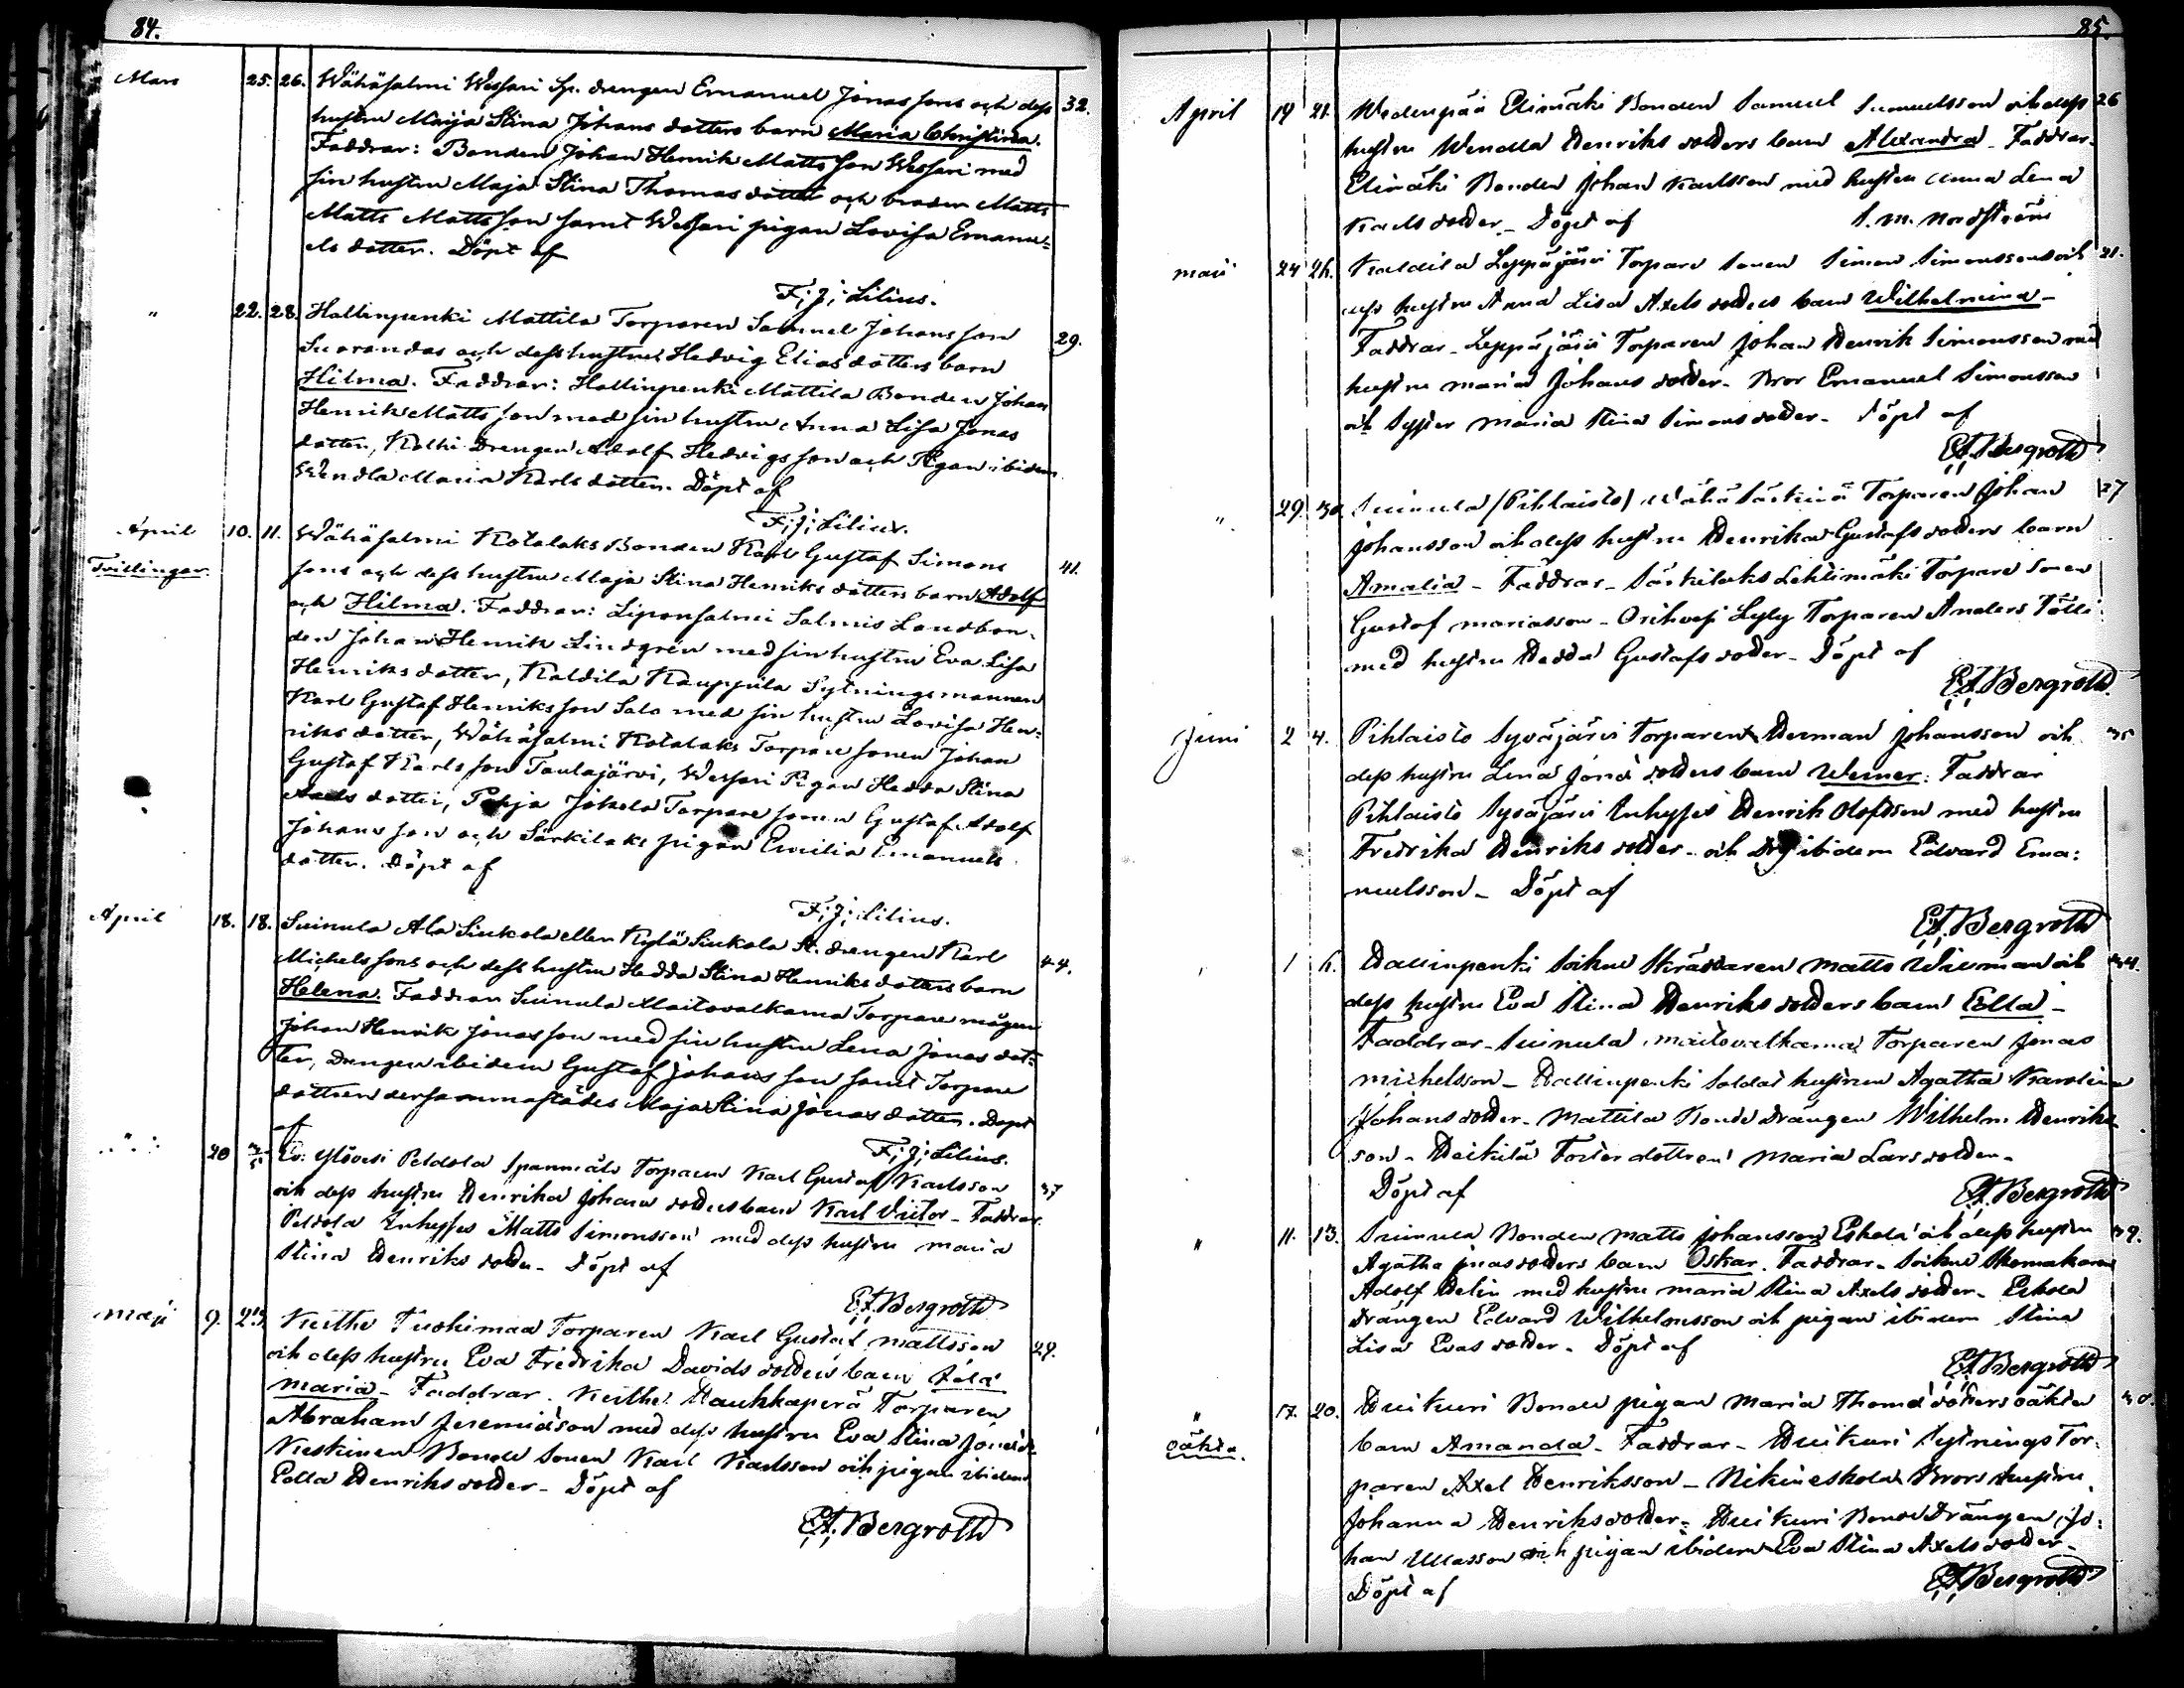 84.
Mars 25. 26. Wähäsalmi Wessari Sp. drengen Emanuel Jonas sons och dess 32.
hustru Maija Stina Johans dotters barn Maria Christina.
Faddrar: Bonden Johan Henrik Matts son Wessari med
sin hustru Maja Stina Thomas dotter och brodern Matts
Matts Matts son samt Wessari pigan Lovisa Emanu=
els dotter. Döpt af
F; J; Lilius.
" 22. 28. Hallinpenki Mattila Torparen Samuel Johans son 29.
Suorandas och dess hustrus Hedvig Elias dotters barn
Hilma. Faddrar: Hallinpenki Mattila Bonden Johan
Henrik Matts son med sin hustru Anna Lisa Jonas
dotter, Kolhi Drengen Adolf Hedvigs son och Pigan ibidem
Wendla Maria Karls dotter. Döpt af
F; J; Lilius.
April 10. 11. Wähäsalmi Kotalaks Bonden Karl Gustaf Simons 41.
Tvillingar. sons och dess hustru Maja Stina Henriks dotters barn Adolf
och Hilma. Faddrar: Liponsalmi Salmis Landbon-
den Johan Henrik Lindgren med sin hustru Eva Lisa
Henriks dotter, Kaldila Kauppila Sytningsmannen
Karl Gustaf Henriks son Salo med sin hustru Lovisa Hen=
riks dotter, Wähäsalmi Kotalaks Torpare sonen Johan
Gustaf Karls son Taulajärvi, Wessari Pigan Hedda Stina
Axels dotter, Pohja Jokela Torpare sonen Gustaf Adolf
Johans son och Särkilaks pigan Emilia Emanuels
dotter. Döpt af
F; J; Lilius.
April 18. 18. Suinula Ala Siukola eller Kylä Siukola St. drengen Karl 44.
Michels sons och dess hustru Hedda Stina Henriks dotters barn
Helena. Faddrar Suinula Maitovalkama Torpare mågen
Johan Henrik Jonas son med sin hustru Lena Jonas dot=
ter, drengen ibidem Gustaf Johans son samt Torpare
dottren dersammastädes Maja Stina Jonas dotter. Döpt
af
F; J; Lilius.
" 20 3/5 Ylövesi Peldola Spannmåls Torparen Karl Gustaf Karlsson 37
och dess hustru Henrika Johans dotters barn Karl Victor - Faddrar
Peldola Inhyses Matts Simonsson med dess hustru Maria
Stina Henriks dotter - Döpt af
E. A. Bergroth
Maji 9. 23. Keitho Tuohimaa Torparen Karl Gustaf Mattsson 29.
och dess hustru Eva Fredrika Davids dotters barn Ida
Maria - Faddrar. Keitho Haukkaperä Torparen
Abraham Jeremiasson med dess hustru Eva Stina Jonæd.
Keskinen Bonde sonen Karl Karlsson och pigan ibidem
Edla Henriks dotter - Döpt af
E. A. Bergroth
85.
April 19 21. Wedenpää Elimäki Bonden Samuel Samuelsson och dess 26
hustru Wendla Henriks dotters barn Alexandra - Faddrar-
Elimäki Bonden Johan Karlsson med hustru Anna Lena
Karls dotter - Döpt af S. M. Nordström
Maii 24 26. Kaldila Leppäjärvi Torpare sonen Simon Simonssons och 21.
dess hustru Anna Lisa Axels dotters barn Wilhelmina -
Faddrar - Leppäjärvi Torparen Johan Henrik Simonsson med
hustru Maria Johans dotter - Bror Emanuel Simonsson
och Syster Maria Stina Simons dotter - Döpt af
E. A. Bergroth
" 29. 30. Suinula (Pihlaisto) Wähä Särkinä Torparen Johan 27
Johansson och dess hustru Henrika Gustafs dotters barn
Amalia - Faddrar - Särkilaks Lehtimäki Torpare sonen
Gustaf Mariasson - Orihvesi Lyly Torparen Anders Tölli
med hustru Hedda Gustafs dotter - Döpt af
E. A. Bergroth
Juni 2 4. Pihlaisto Syväjärvi Torparen Herman Johansson och 35
dess hustru Lena Jonæ dotters barn Werner. Faddrar
Pihlaisto Syväjärvi Inhyses Henrik Olofsson med hustru
Fredrika Henriks dotter - och Drg ibidem Edvard Ema:
nuelsson - Döpt af
E. A. Bergroth
" 1 6. Hallinpenki Soikne Skräddaren Matts Willman och 34.
dess hustru Eva Stina Henriks dotters barn Edla -
Faddrar - Suinula Maitovalkama Torparen Jonas
Michelsson - Hallinpenki Soldat hustrun Agatha Karolina
Johans dotter - Mattila Bonde Drängen Wilhelm Henriks
son - Heikilä Foster dottren Maria Lars dotter -
Döpt af E. A. Bergroth
" 11. 13. Suinula Bonden Matts Johansson Eskola och dess hustru 39.
Agatha Jonas dotters barn Oskar. Faddrar - Soikne Skomakaren
Adolf Helin med hustru Maria Stina Axels dotter - Eskola
Drängen Edvard Wilhelmsson och pigan ibidem Stina
Lisa Evas dotter - Döpt af
E. A. Bergroth
" 17. 20. Huikuri Bonde pigan Maria Thomæ dotters oäkta 30.
oäkta. barn Amanda - Faddrar - Huikuri Sytnings Tor-
paren Axel Henriksson - Nikineskola Brors hustru
Johanna Henriks dotter - Huikuri Bonde Drängen Jo:
han Ullasson och pigan ibidem Eva Stina Axels dotter -
Döpt af E. A. Bergroth